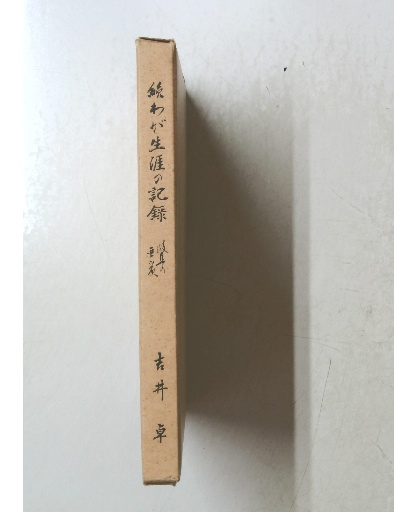 続わが生涯の記録
吉井 卓